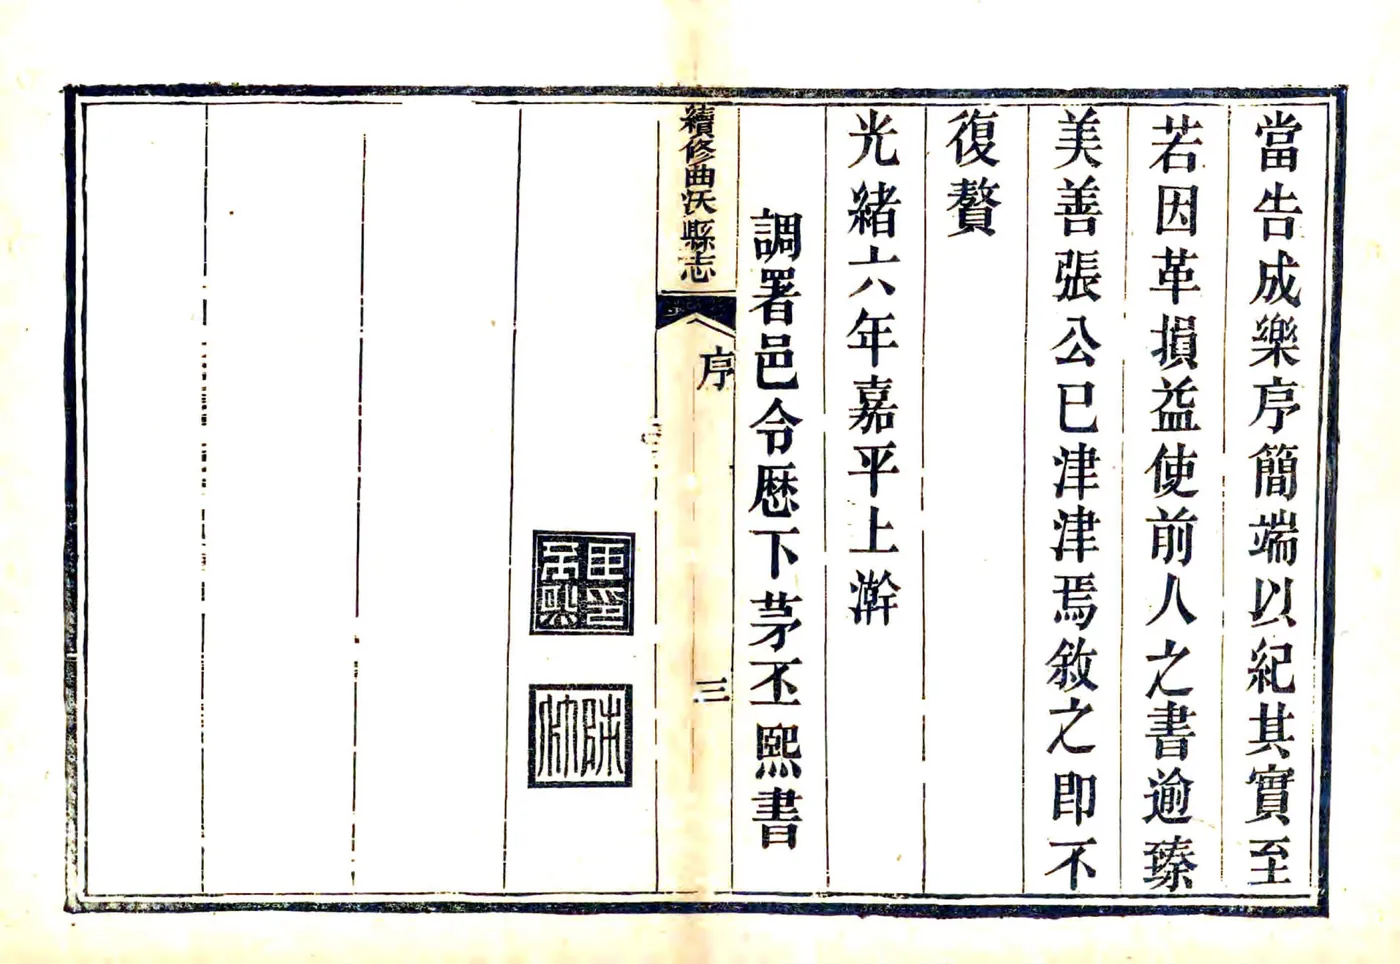 當告成樂序簡端以紀其實至
若因革損益使前人之書逾臻
美善張公已津津焉敘之即不
復贅
光緒六年嘉平上澣
調署邑令歷下茅丕熙書
續修曲沃縣志
序
三